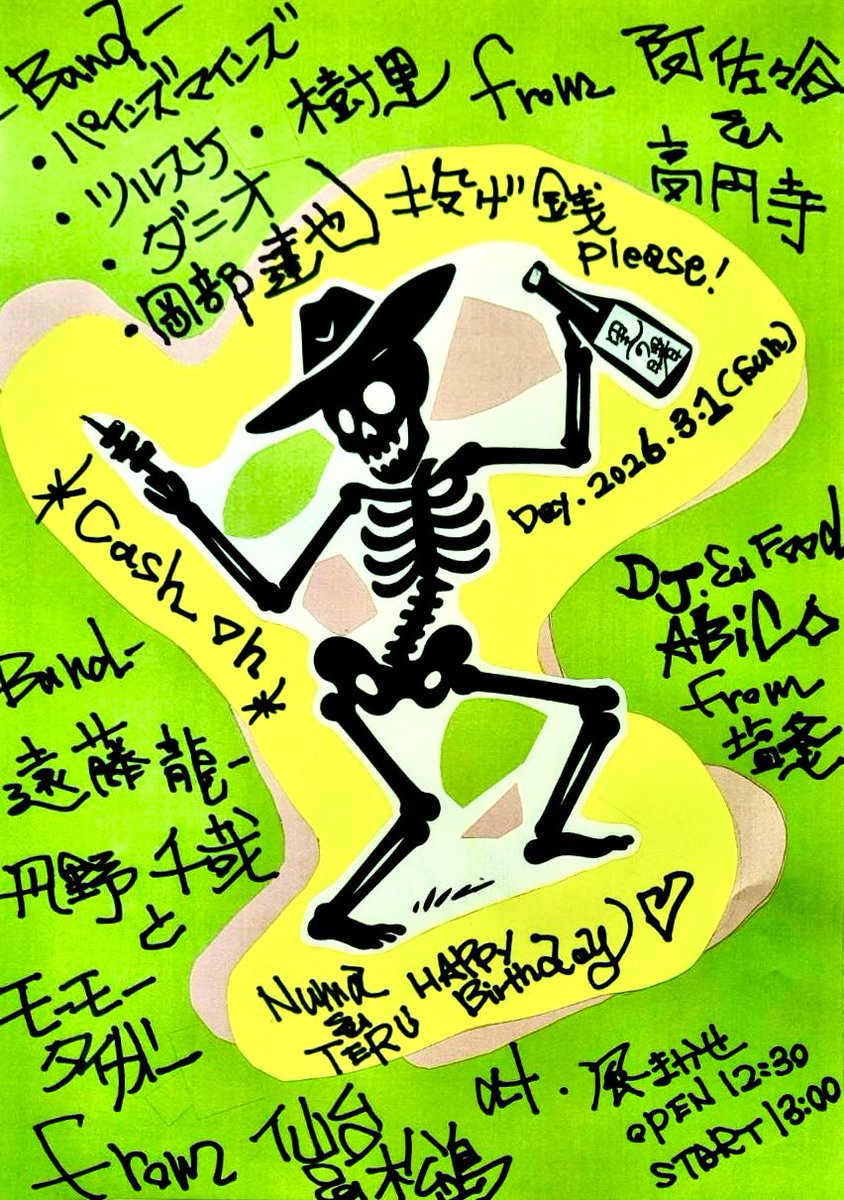 -Band-
・パインズマインズ
・ツルスケ・樹里 from 阿佐ヶ谷
高円寺
・ダニオ
・岡部達也
投げ銭
please!
Day. 2026.3.1(sun)
*Cash on*
DJ. & Food
ABiCo
from
塩釜
Band-
遠藤龍一
丹野千哉
と
モーモー
タイガー
from 仙台
Numa
&
TERU
HAPPY
Birthday
at.
まかせ
OPEN 12:30
START 13:00